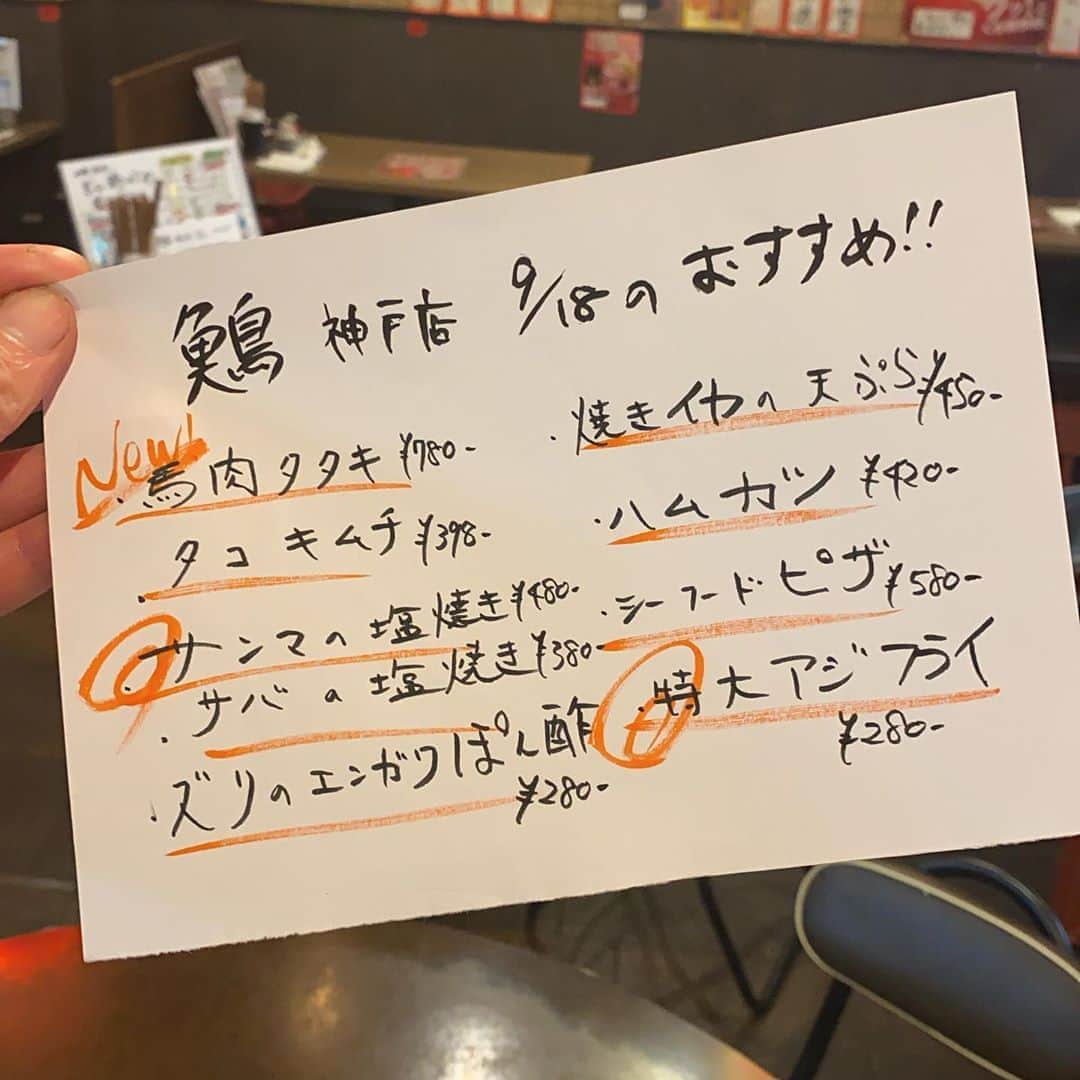 鶏 神戸店 9/18の おすすめ!!
New!
・馬肉タタキ ¥780-
・タコキムチ ¥398-
・サンマの塩焼き ¥480-
・サバの塩焼き ¥380-
・ズリのエンガワぽん酢
¥280-
・焼きイカの天ぷら ¥450-
・ハムカツ ¥420-
・シーフードピザ ¥580-
・特大アジフライ
¥280-